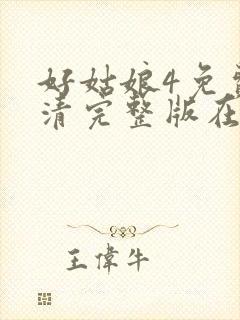 好姑娘4免费
清完整版在
王偉牛